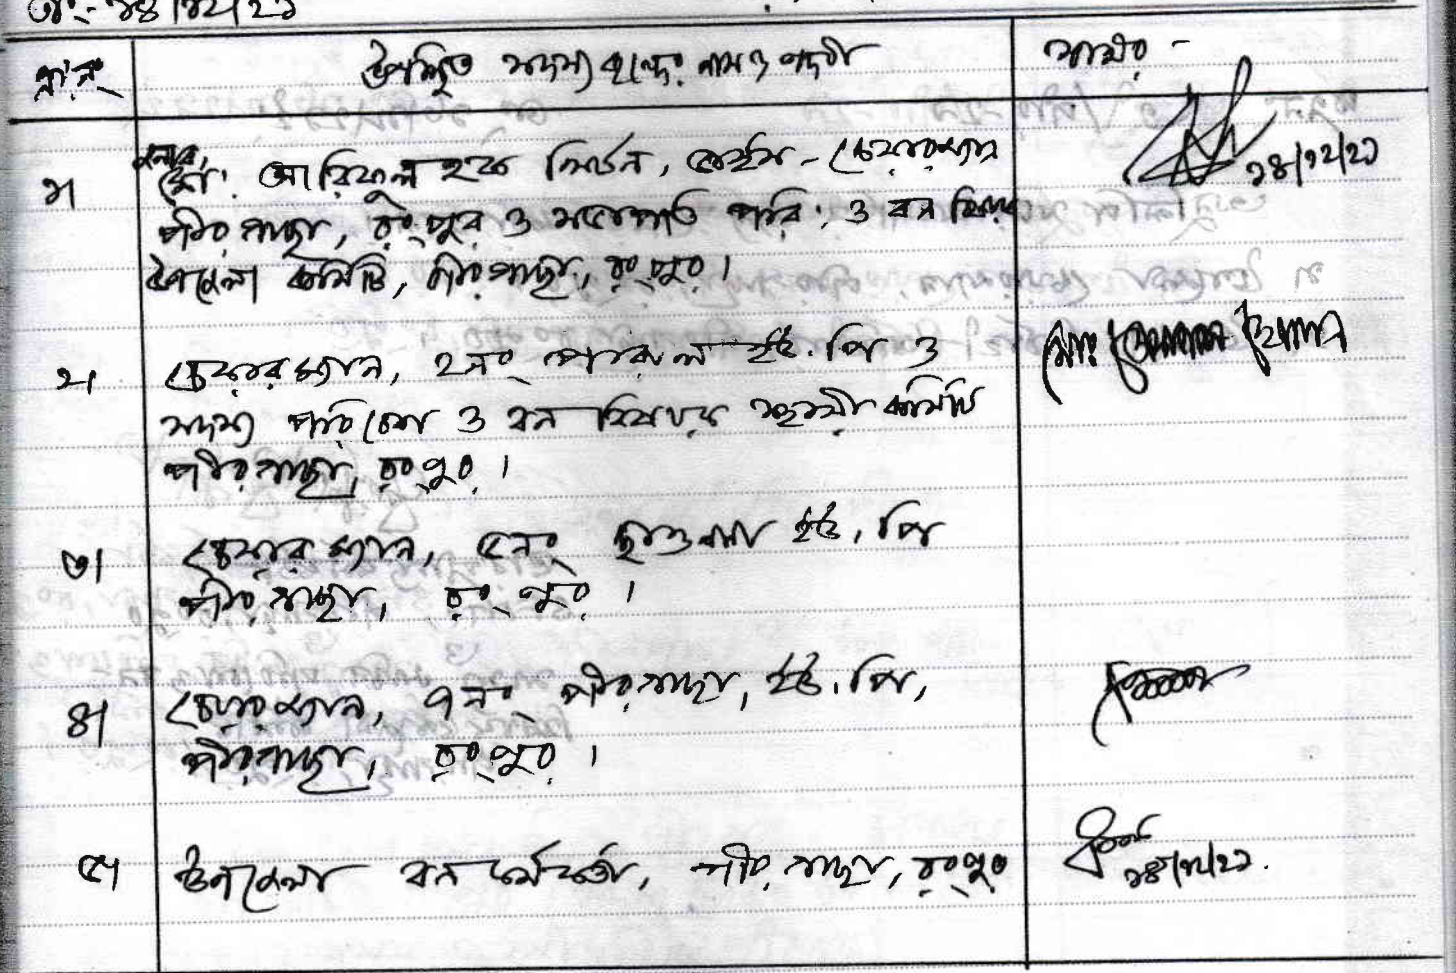 তাং- ১৪/১২/২১
ক্রঃ নং উপস্থিত সদস্য বৃন্দের নাম ও পদবী স্বাক্ষর -
জনাব,
১। মোঃ আরিফুল হক লিটন, ভাইস - চেয়ারম্যান ১৪/১২/২১
পীরগাছা, রংপুর ও সভাপতি পরি: ও বন বিষয়ক
উপজেলা কমিটি, পীরগাছা, রংপুর।
২। চেয়ারম্যান, ২নং পারুল ইউ.পি ও মোঃ
সদস্য পরিবেশ ও বন বিষয়ক স্থায়ী কমিটি
পীরগাছা, রংপুর।
৩। চেয়ারম্যান, ৫নং ছাওলা ইউ.পি
পীরগাছা, রংপুর।
৪। চেয়ারম্যান, ৭নং পীরগাছা, ইউ.পি,
পীরগাছা, রংপুর।
৫। উপজেলা বন কর্মকর্তা, পীরগাছা, রংপুর ১৪/১২/২১.